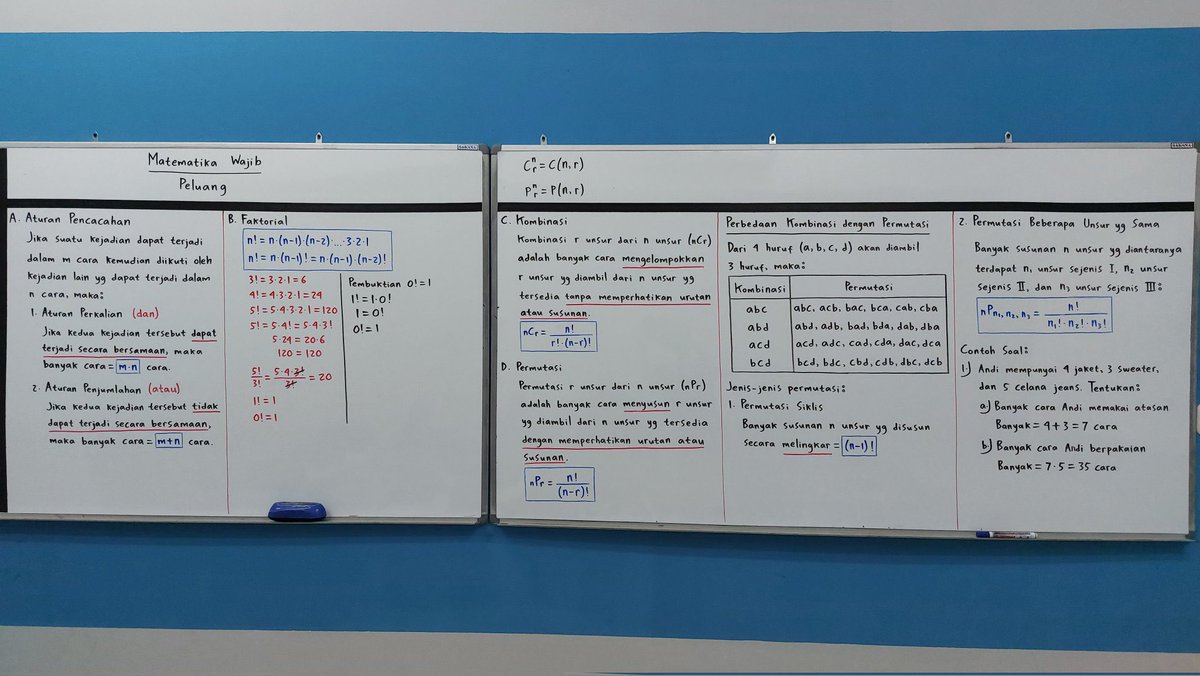 Matematika Wajib
Peluang
A. Aturan Pencacahan
Jika suatu kejadian dapat terjadi
dalam m cara kemudian diikuti oleh
kejadian lain yg dapat terjadi dalam
n cara, maka:
1. Aturan Perkalian (dan)
Jika kedua kejadian tersebut dapat
terjadi secara bersamaan, maka
banyak cara = m·n cara.
2. Aturan Penjumlahan (atau)
Jika kedua kejadian tersebut tidak
dapat terjadi secara bersamaan,
maka banyak cara = m+n cara.
B. Faktorial
n! = n·(n-1)·(n-2)·...·3·2·1
n! = n·(n-1)! = n·(n-1)·(n-2)!
3! = 3·2·1 = 6
4! = 4·3·2·1 = 24
5! = 5·4·3·2·1 = 120
5! = 5·4! = 5·4·3!
5·24 = 20·6
120 = 120
5!/3! = 5·4·3!/3! = 20
1! = 1
0! = 1
Pembuktian 0! = 1
1! = 1·0!
1 = 0!
0! = 1
C^n_r = C(n,r)
P^n_r = P(n,r)
C. Kombinasi
Kombinasi r unsur dari n unsur (nCr)
adalah banyak cara mengelompokkan
r unsur yg diambil dari n unsur yg
tersedia tanpa memperhatikan urutan
atau susunan.
nCr = n!/r!·(n-r)!
D. Permutasi
Permutasi r unsur dari n unsur (nPr)
adalah banyak cara menyusun r unsur
yg diambil dari n unsur yg tersedia
dengan memperhatikan urutan atau
susunan.
nPr = n!/(n-r)!
Perbedaan Kombinasi dengan Permutasi
Dari 4 huruf (a, b, c, d) akan diambil
3 huruf, maka:
Kombinasi Permutasi
abc abc, acb, bac, bca, cab, cba
abd abd, adb, bad, bda, dab, dba
acd acd, adc, cad, cda, dac, dca
bcd bcd, bdc, cbd, cdb, dbc, dcb
Jenis-jenis permutasi:
1. Permutasi Siklis
Banyak susunan n unsur yg disusun
secara melingkar = (n-1)!
2. Permutasi Beberapa Unsur yg Sama
Banyak susunan n unsur yg diantaranya
terdapat n₁ unsur sejenis I, n₂ unsur
sejenis II, dan n₃ unsur sejenis III:
nPn₁, n₂, n₃ = n!/n₁!·n₂!·n₃!
Contoh Soal:
1.) Andi mempunyai 4 jaket, 3 sweater,
dan 5 celana jeans. Tentukan:
a.) Banyak cara Andi memakai atasan
Banyak = 4+3 = 7 cara
b.) Banyak cara Andi berpakaian
Banyak = 7·5 = 35 cara